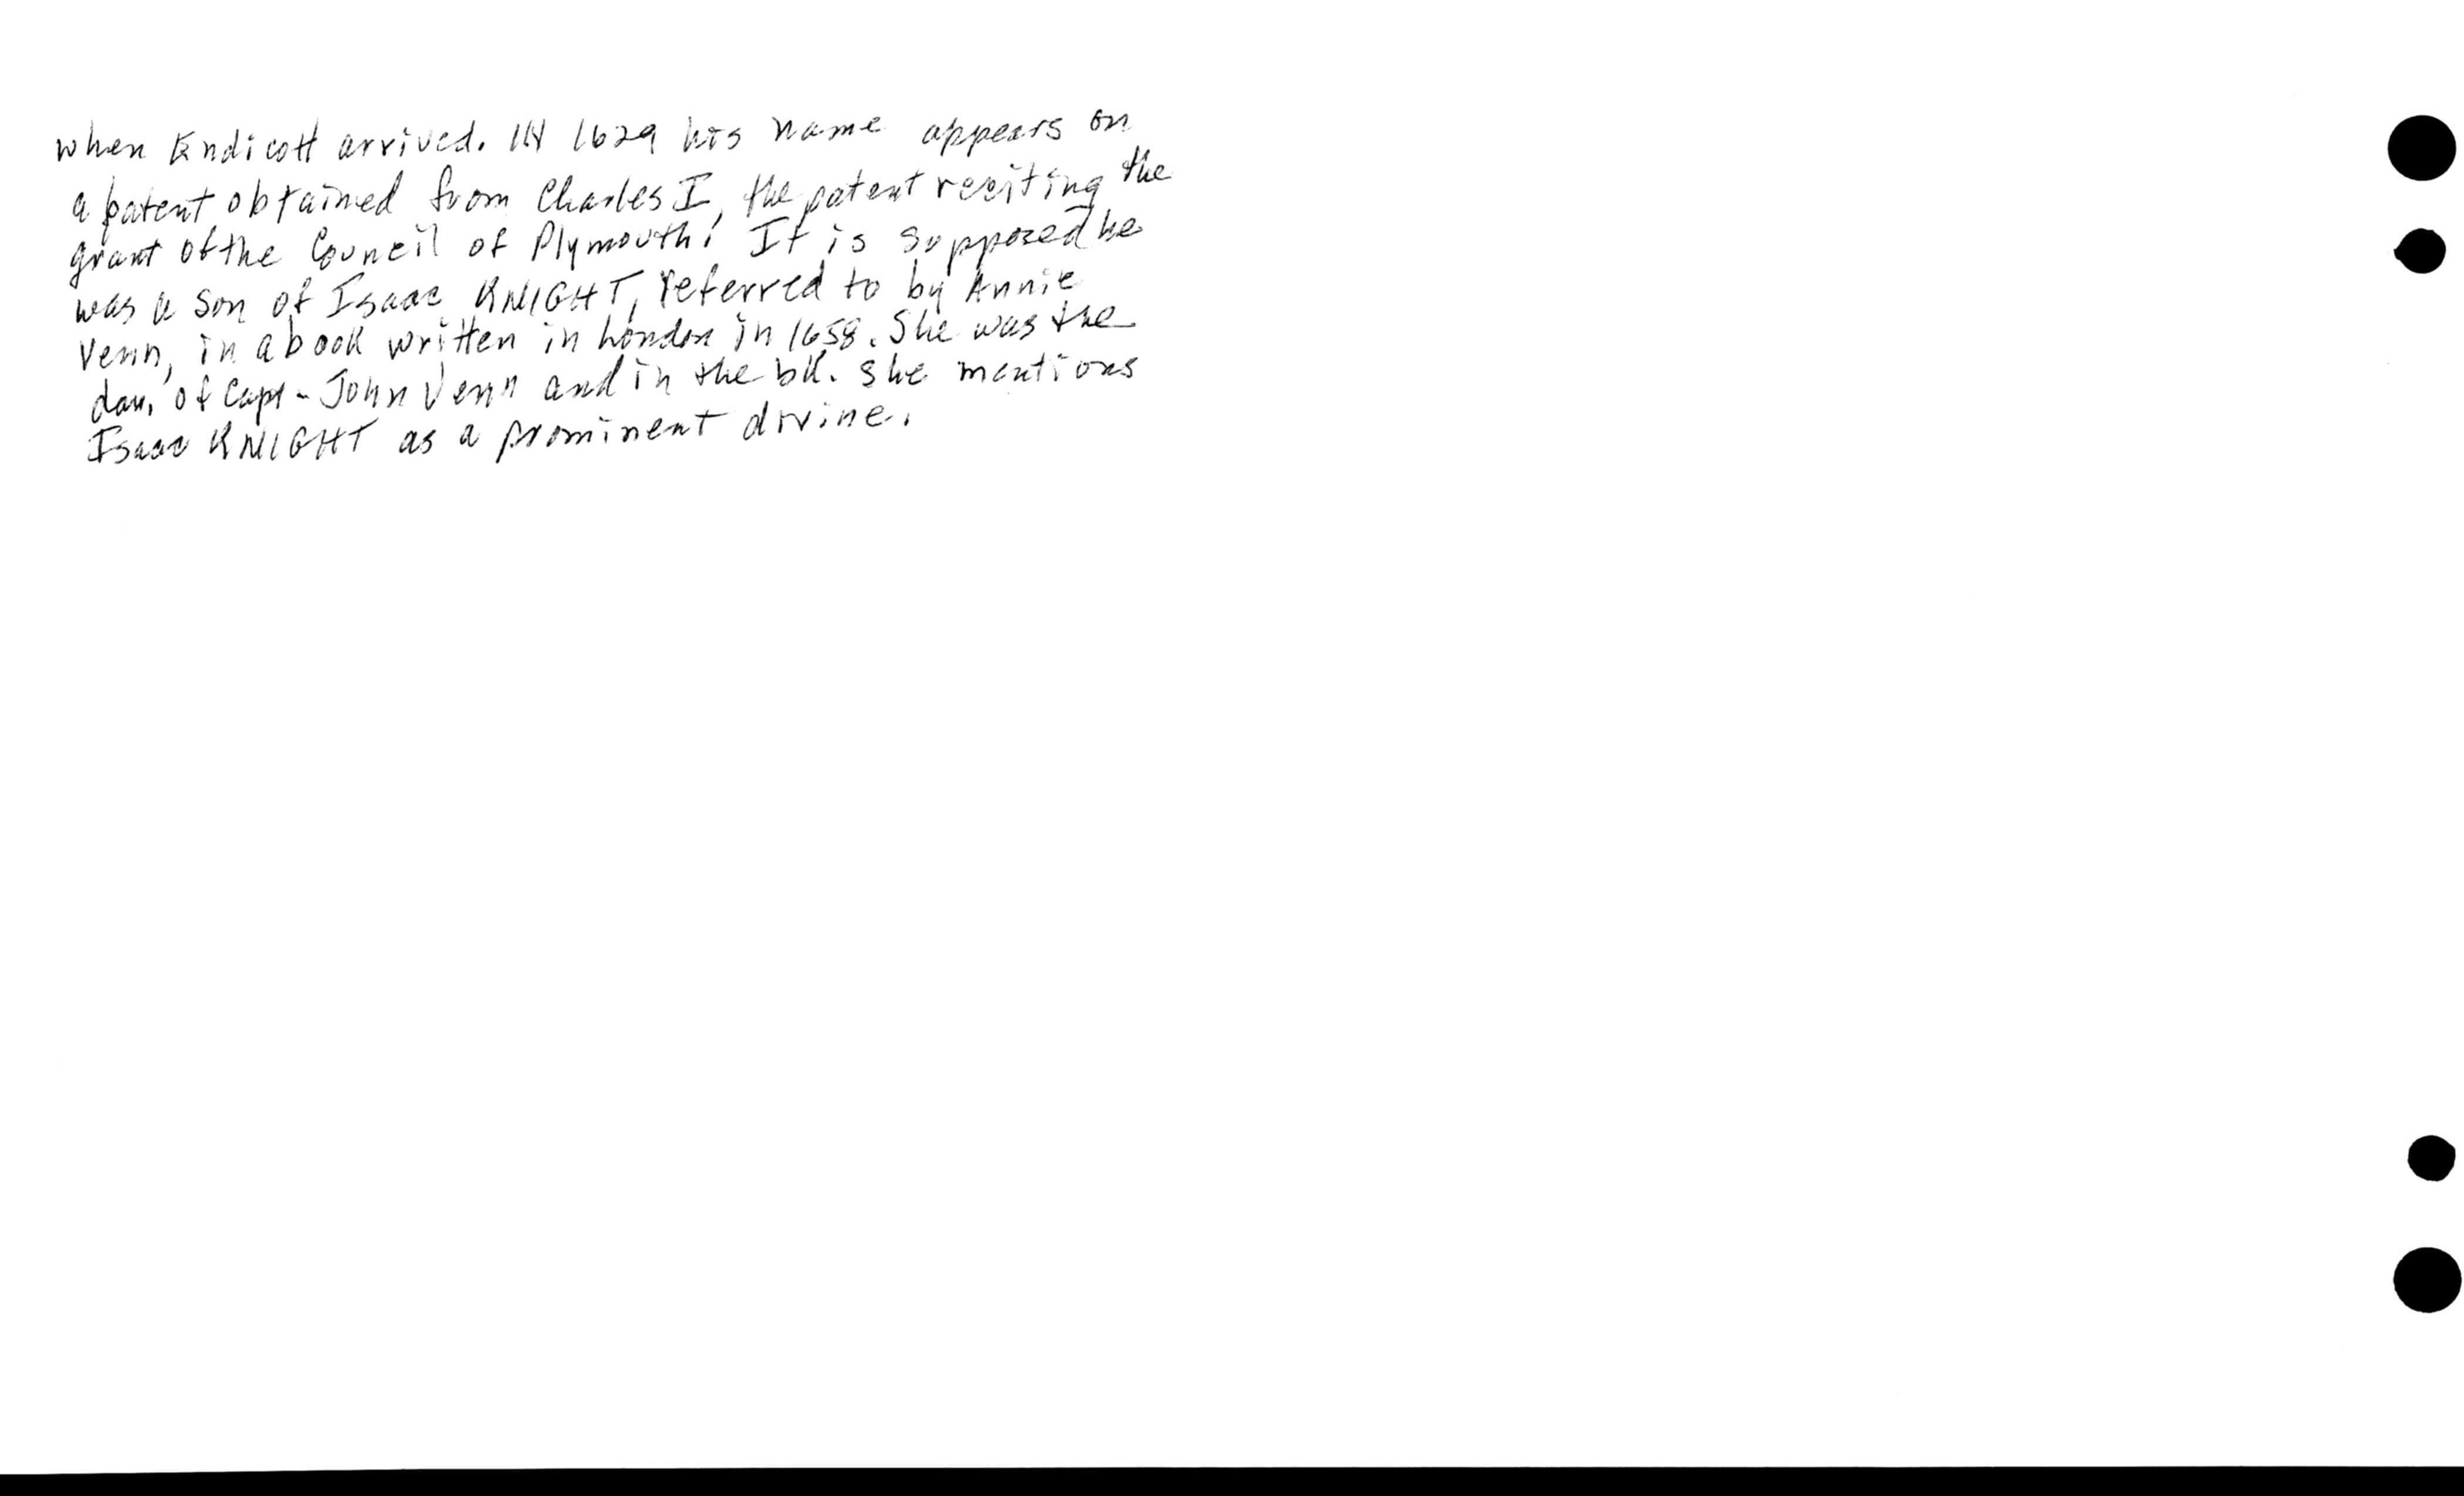 when Endicott arrived. IN 1629 his name appears on
a patent obtained from Charles I, the patent reciting the
grant of the Council of Plymouth! It is supposed he
was a son of Isaac KNIGHT, referred to by Annie
Venn, in a book written in London in 1658. She was the
dau, of Capt - John Venn and in the bk. she mentions
Isaac KNIGHT as a prominent divine.